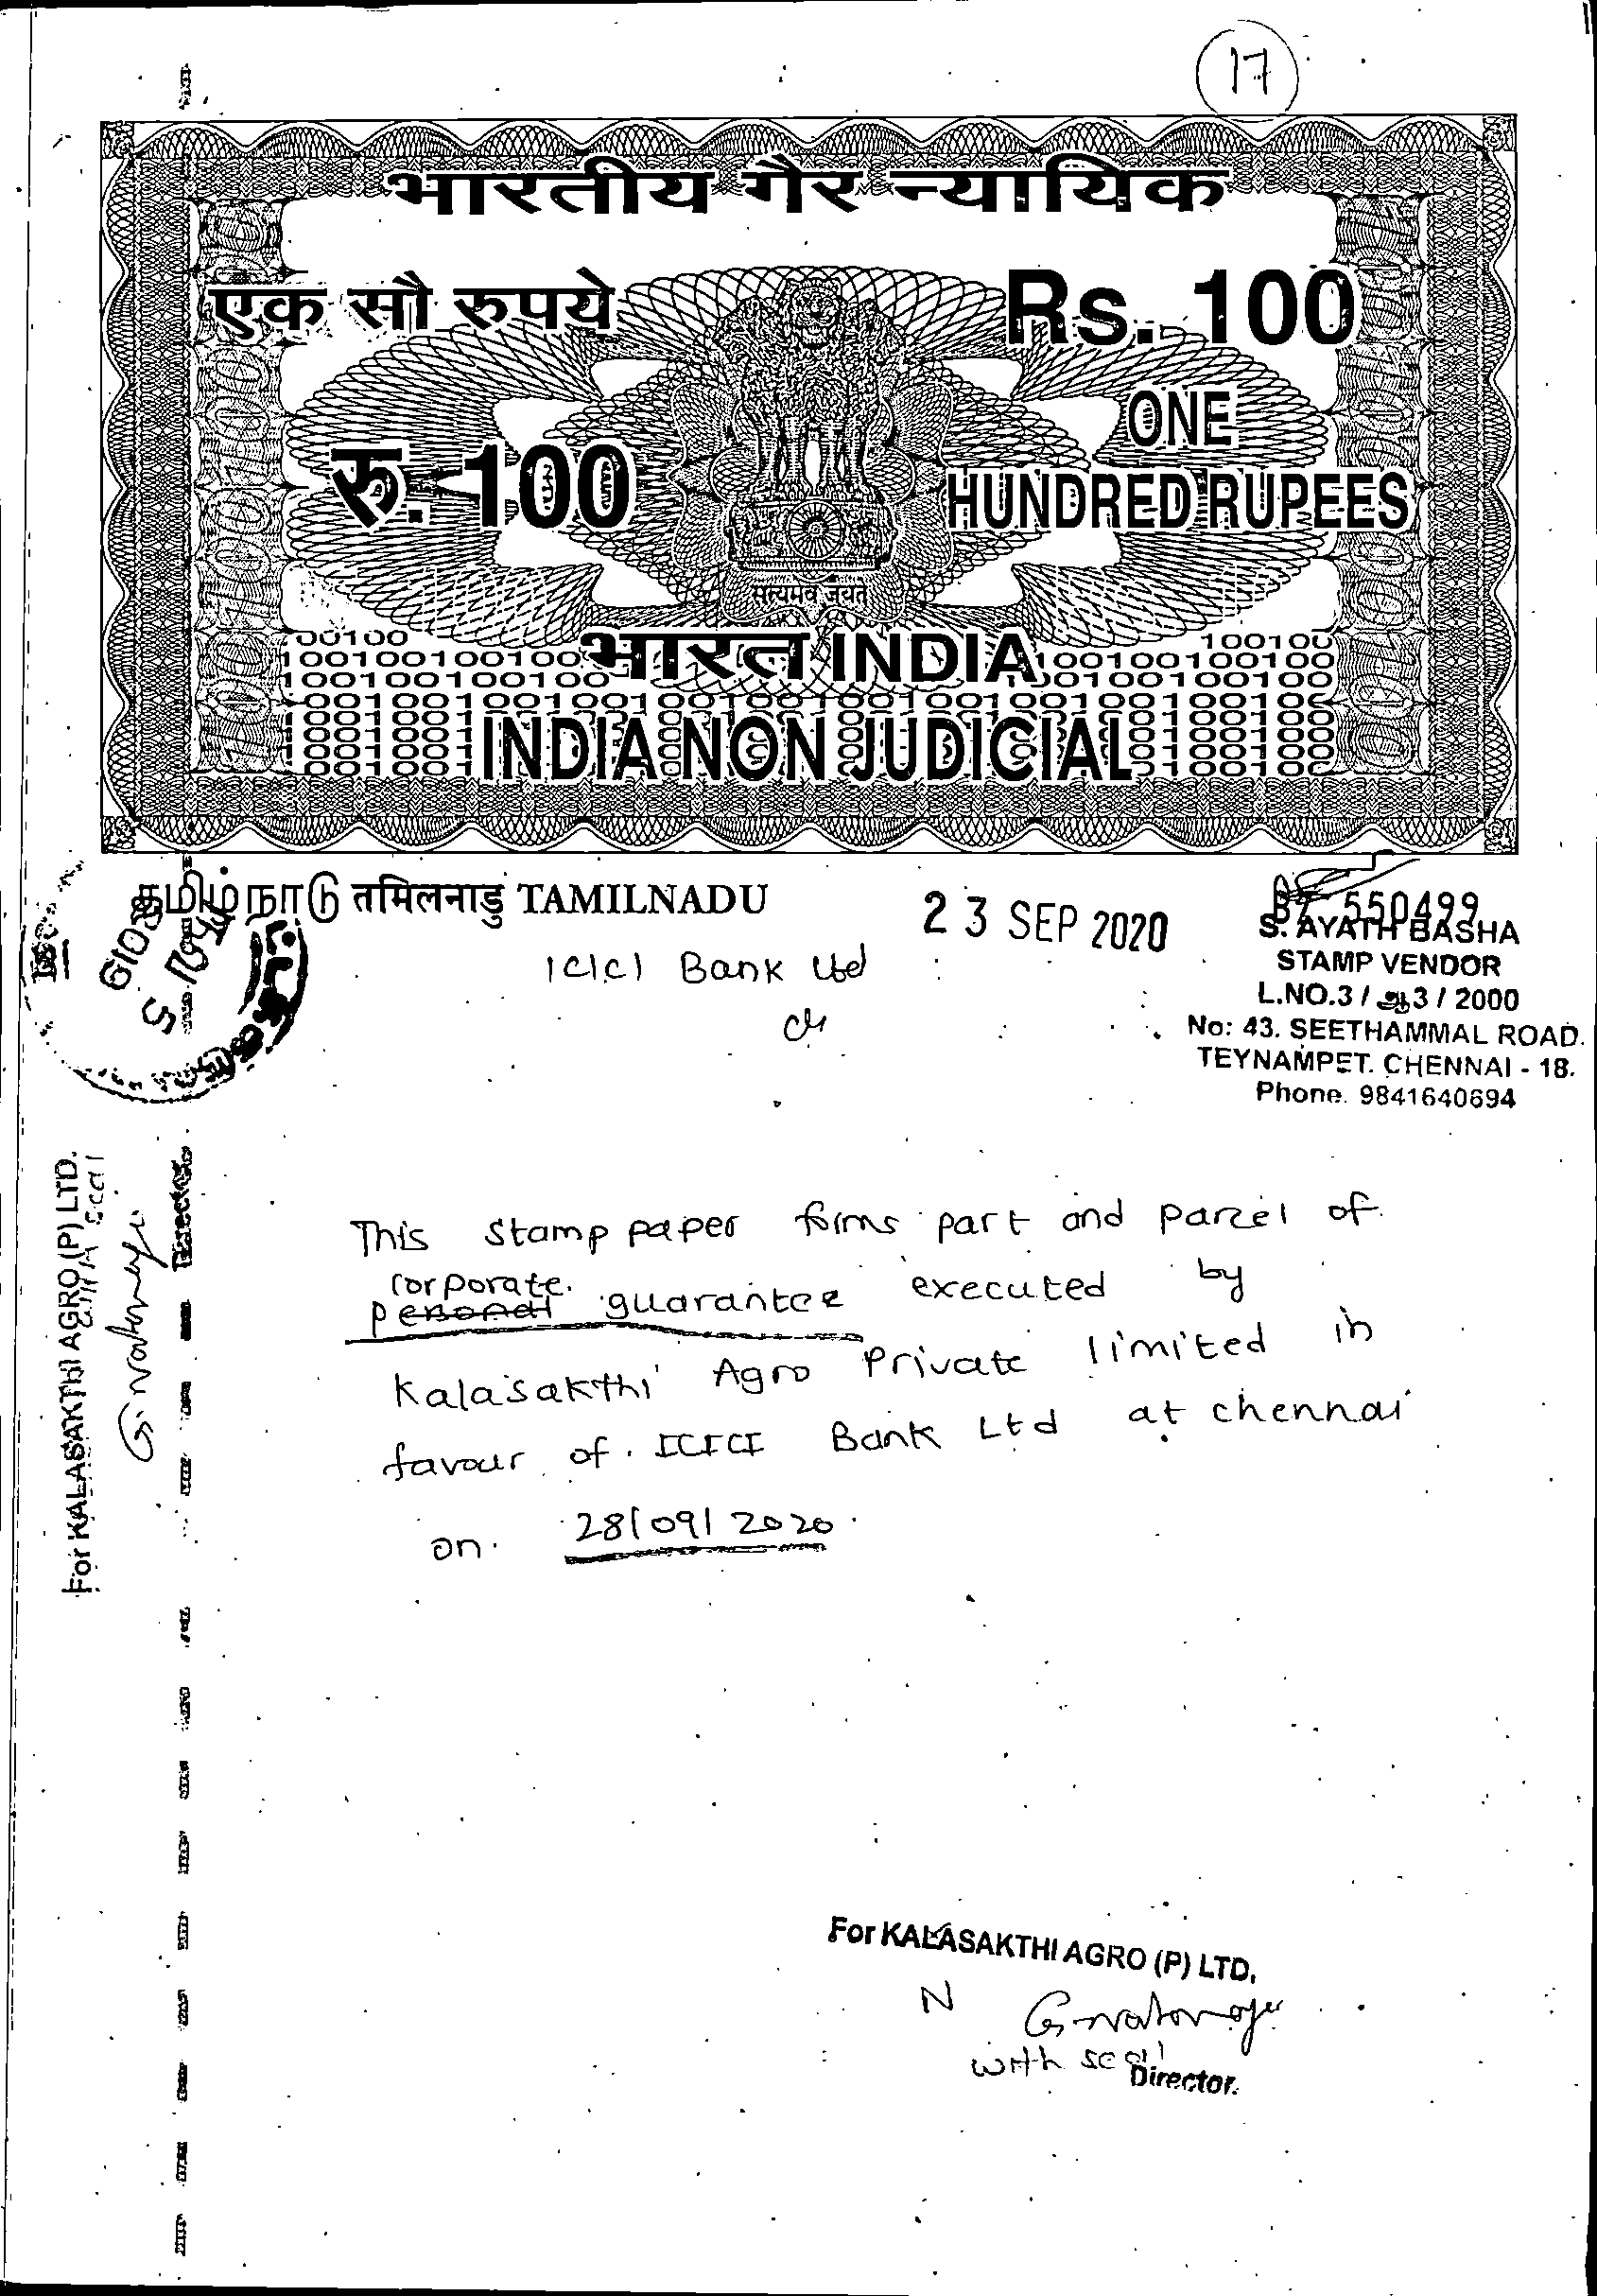 17
भारतीय गैर न्यायिक
एक सौ रुपये
Rs. 100
रु. 100
ONE
HUNDRED RUPEES
सत्यमेव जयते
भारत INDIA
INDIA NON JUDICIAL
தமிழ்நாடு तमिलनाडु TAMILNADU
23 SEP 2020
BZ 550499
S. AYATH BASHA
STAMP VENDOR
L.NO.3 / ஆ3 / 2000
No: 43. SEETHAMMAL ROAD.
TEYNAMPET. CHENNAI - 18.
Phone. 9841640694
ICICI Bank Ltd
This stamp paper forms part and parcel of
corporate
personal guarantee executed by
Kalasakthi Agro Private limited in
favour of ICICI Bank Ltd at chennai
on 28/09/2020
For KALASAKTHI AGRO (P) LTD.
Director.
For KALASAKTHI AGRO (P) LTD,
N
with seal
Director.